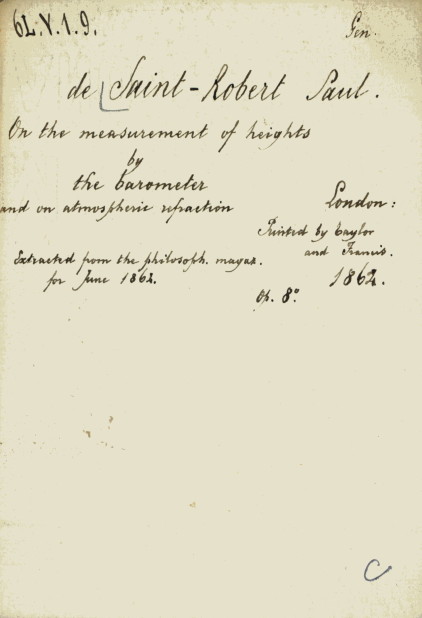 6L.V.1.9.
Gen.
de Saint-Robert Paul.
On the measurement of heights
by
the barometer
and on atmospheric refraction
London:
Printed by Taylor
and Francis.
Extracted from the philosoph. magaz.
for June 1862.
1862.
Op. 8°
C